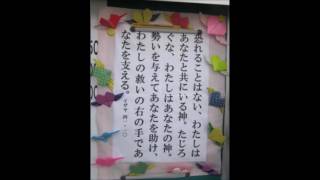 恐れることはない、わたしは
あなたと共にいる神。たじろ
ぐな、わたしはあなたの神。
勢いを与えてあなたを助け、
わたしの救いの右の手であ
なたを支える。イザヤ 四一・一〇